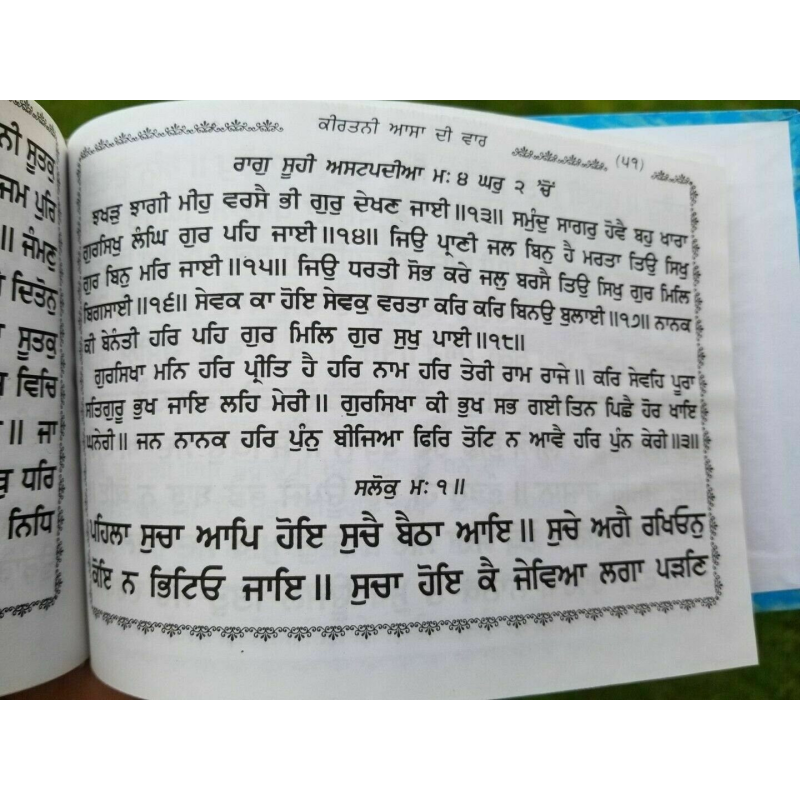 ਨੀ ਸੂਤਕੁ
ਜਮ ਪੁਰਿ
॥ ਜੰਮਣੁ
ਦਿਤੋਨੁ
ਸੂਤਕੁ
ਵਿਚਿ
॥ ਜਾ
ਧਰਿ
ਨਿਧਿ
ਕੀਰਤਨੀ ਆਸਾ ਦੀ ਵਾਰ (੫੧)
ਰਾਗੁ ਸੂਹੀ ਅਸਟਪਦੀਆ ਮਃ ੪ ਘਰੁ ੨ 'ਚੋਂ
ਝਖੜੁ ਝਾਗੀ ਮੀਹੁ ਵਰਸੈ ਭੀ ਗੁਰੁ ਦੇਖਣ ਜਾਈ॥੧੩॥ ਸਮੁੰਦੁ ਸਾਗਰੁ ਹੋਵੈ ਬਹੁ ਖਾਰਾ
ਗੁਰਸਿਖੁ ਲੰਘਿ ਗੁਰ ਪਹਿ ਜਾਈ॥੧੪॥ ਜਿਉ ਪ੍ਰਾਣੀ ਜਲ ਬਿਨੁ ਹੈ ਮਰਤਾ ਤਿਉ ਸਿਖੁ
ਗੁਰ ਬਿਨੁ ਮਰਿ ਜਾਈ॥੧੫॥ ਜਿਉ ਧਰਤੀ ਸੋਭ ਕਰੇ ਜਲੁ ਬਰਸੈ ਤਿਉ ਸਿਖੁ ਗੁਰ ਮਿਲਿ
ਬਿਗਸਾਈ॥੧੬॥ ਸੇਵਕ ਕਾ ਹੋਇ ਸੇਵਕੁ ਵਰਤਾ ਕਰਿ ਕਰਿ ਬਿਨਉ ਬੁਲਾਈ॥੧੭॥ ਨਾਨਕ
ਕੀ ਬੇਨੰਤੀ ਹਰਿ ਪਹਿ ਗੁਰ ਮਿਲਿ ਗੁਰ ਸੁਖੁ ਪਾਈ॥੧੮॥
ਗੁਰਸਿਖਾ ਮਨਿ ਹਰਿ ਪ੍ਰੀਤਿ ਹੈ ਹਰਿ ਨਾਮ ਹਰਿ ਤੇਰੀ ਰਾਮ ਰਾਜੇ॥ ਕਰਿ ਸੇਵਹਿ ਪੂਰਾ
ਸਤਿਗੁਰੂ ਭੁਖ ਜਾਇ ਲਹਿ ਮੇਰੀ॥ ਗੁਰਸਿਖਾ ਕੀ ਭੁਖ ਸਭ ਗਈ ਤਿਨ ਪਿਛੈ ਹੋਰ ਖਾਇ
ਘਨੇਰੀ॥ ਜਨ ਨਾਨਕ ਹਰਿ ਪੁੰਨੁ ਬੀਜਿਆ ਫਿਰਿ ਤੋਟਿ ਨ ਆਵੈ ਹਰਿ ਪੁੰਨ ਕੇਰੀ॥੩॥
ਸਲੋਕੁ ਮਃ ੧॥
ਪਹਿਲਾ ਸੁਚਾ ਆਪਿ ਹੋਇ ਸੁਚੈ ਬੈਠਾ ਆਇ॥ ਸੁਚੇ ਅਗੈ ਰਖਿਓਨੁ
ਕੋਇ ਨ ਭਿਟਿਓ ਜਾਇ॥ ਸੁਚਾ ਹੋਇ ਕੈ ਜੇਵਿਆ ਲਗਾ ਪੜਣਿ